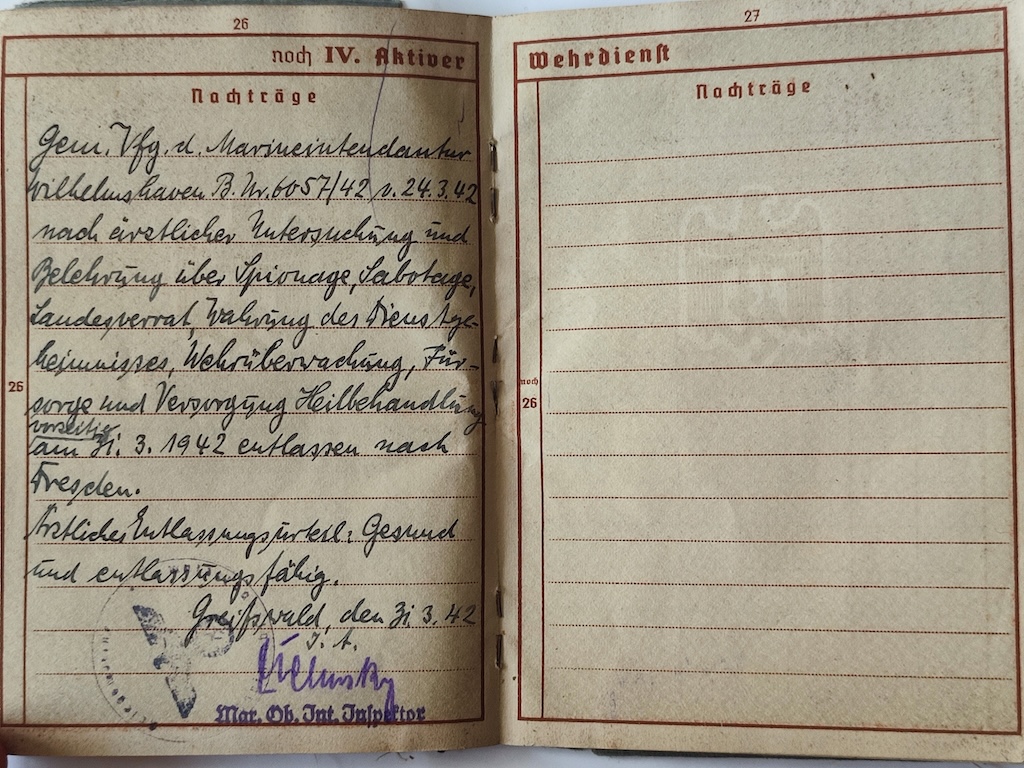 26
noch IV. Aktiver
Nachträge
Gem. Vfg. d. Marineintendantur
Wilhelmshaven B. Nr. 6057/42 v. 24.3.42
nach ärztlicher Untersuchung und
Belehrung über Spionage, Sabotage,
Landesverrat, Wahrung des Dienstge-
heimnisses, Wehrüberwachung, Für-
26
sorge und Versorgung Heilbehandlung
vorzeitig
am 31. 3. 1942 entlassen nach
Dresden.
Ärztliches Entlassungsurteil: Gesund
und entlassungsfähig.
Greifswald, den 31 3. 42
I. A.
Mar. Ob. Int. Inspektor
27
Wehrdienst
Nachträge
noch
26